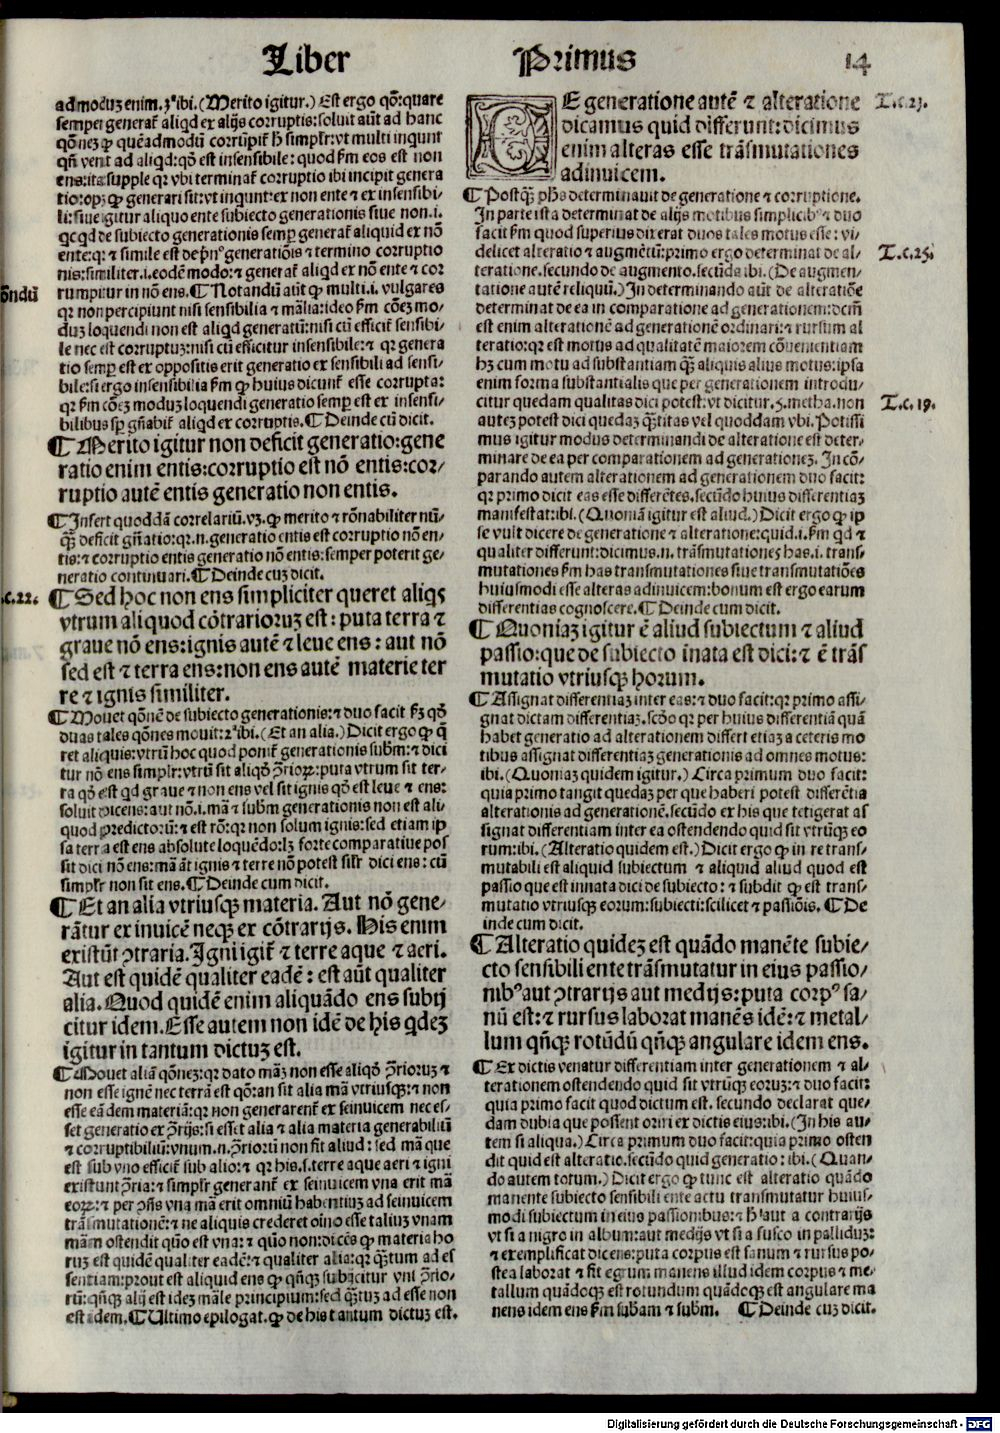 Liber Primus 14
ad modũ enim. 3ᵃ ibi. (Merito igitur.) Est ergo qõ: quare
semper generat̃ aliqd ex alijs corruptis: soluit aũt ad hanc
qõneꝫ ꝙ quẽadmodũ corrũpit̃ h̃ simplr̃: vt multi inqunt
qñ venit ad aliqd: qõ est insensibile: quod ẜm eos est non
ens: ita supple qr vbi terminat̃ corruptio ibi incipit genera
tio: opꝫ ꝙ generari sit: vt inqunt: ex non ente ⁊ ex insensibi⸗
li: siue igitur aliquo ente subiecto generationis siue non .i.
qcqd de subiecto generationis semp̃ generat̃ aliquid ex nõ
ente: q: ⁊ simile est de p̃nᵒ generatiõis ⁊ termino corruptio
nis: similiter .i. eodẽ modo: ⁊ generat̃ aliqd ex nõ ente ⁊ cor
rumpitur in nõ ens. ¶ Notandũ aũt ꝙ multi .i. vulgares
qr non percipiunt nisi sensibilia ⁊ mãlia: ideo ẜm cõeꝫ mo⸗
duꝫ loquendi non est aliqd generatũ: nisi cũ efficit̃ sensibi⸗
le nec est corruptuꝫ: nisi cũ efficitur insensibile: ⁊ qr genera
tio semp̃ est ex oppositis erit generatio ex sensibili ad sensi⸗
bile: si ergo insensibilia ẜm ꝙ huius dicunt̃ esse corrupta:
qr ẜm cõeꝫ moduꝫ loquendi generatio semp̃ est ex insensi⸗
bilibus sp̃ gñabit̃ aliqd ex corruptis. ¶ Deinde cũ dicit.
¶ Merito igitur non deficit generatio: gene
ratio enim entis: corruptio est nõ entis: cor⸗
ruptio autẽ entis generatio non entis.
¶ Infert quoddã correlariũ. vꝫ. ꝙ merito ⁊ rõnabiliter nũ⸗
q̃ꝫ deficit gñatio: qr .n. generatio entis est corruptio nõ en⸗
tis: ⁊ corruptio entis generatio nõ entis: semper poterit ge⸗
neratio continuari. ¶ Deinde cuꝫ dicit.
.c.22. ¶ Sed hoc non ens simpliciter queret aliqs
vtrum aliquod cõtrarioruꝫ est: puta terra ⁊
graue nõ ens: ignis autẽ ⁊ leue ens: aut nõ
sed est ⁊ terra ens: non ens autẽ materie ter
re ⁊ ignis similiter.
¶ Mouet qõnẽ de subiecto generationis: ⁊ duo facit ẜꝫ qõ
duas tales qõnes mouit: 2ᵃ ibi. (Et an alia.) Dicit ergo ꝙ q̃
ret aliquis: vtrũ hoc quod ponit̃ generationis subm̃: ⁊ dici
tur nõ ens simplr̃: vtrũ sit aliqõ p̃rioꝝ: puta vtrum sit ter⸗
ra qõ est qd graue ⁊ non ens vel sit ignis qõ est leue ⁊ ens:
soluit dicens: aut nõ .i. mã ⁊ subm̃ generationis non est ali
quod predictorũ: ⁊ est rõ: qr non solum ignis: sed etiam ip̃
sa terra est ens absolute loquẽdo: lꝫ forte comparatiue pos
sit dici nõ ens: mã ãt ignis ⁊ terre nõ potest silr̃ dici ens: cũ
simplr̃ non sit ens. ¶ Deinde cum dicit.
¶ Et an alia vtriusqꝫ materia. Aut nõ gene⸗
rãtur ex inuicẽ neqꝫ ex cõtrarijs. His enim
existũt ꝯtraria. Igni igit̃ ⁊ terre aque ⁊ aeri.
Aut est quidẽ qualiter eadẽ: est aũt qualiter
alia. Quod quidẽ enim aliquãdo ens subij
citur idem. Esse autem non idẽ de his qdeꝫ
igitur in tantum dictuꝫ est.
¶ Mouet aliã qõneꝫ: qr dato mãꝫ non esse aliqõ p̃rioruꝫ ⁊
non esse ignẽ nec terrã est qõ: an sit alia mã vtriusqꝫ: ⁊ non
esse eãdem materiã: qr non generarent̃ ex seinuicem nec es⸗
set generatio ex p̃rijs: si esset alia ⁊ alia materia generabiliũ
⁊ corruptibiliũ: vnum .n. p̃riorũ non fit aliud: sed mã que
est sub vno efficit̃ sub alio: ⁊ qr his .s. terre aque aeri ⁊ igni
existunt p̃ria: ⁊ simplr̃ generant̃ ex seinuicem vna erit mã
eoꝝ: ⁊ per ꝯñs vna mã erit omniũ habentiuꝫ ad seinuicem
trãsmutationẽ: ⁊ ne aliquis crederet oĩno esse taliuꝫ vnam
mãm ostendit quõ est vna: ⁊ quõ non: dicẽs ꝙ materia ho
ruꝫ est quidẽ qualiter eadẽ: ⁊ qualiter alia: qr q̃ꝫtum ad es
sentiam: prout est aliquid ens ꝙ qñqꝫ subijcitur vni p̃rio⸗
rũ: qñqꝫ alij est ideꝫ mãle principium: sed q̃ꝫtuꝫ ad esse non
est idem. ¶ Ultimo epilogat. ꝙ de his tantum dictuꝫ est.
T.c.23. DE generatione autẽ ⁊ alteratione
dicamus quid differunt: dicimus
enim alteras esse trãsmutationes
adinuicem.
¶ Postq̃ꝫ ph̃s determinauit de generatione ⁊ corruptione.
In parte ista determinat de alijs motibus simplicibᵒ ⁊ duo
facit ẜm quod superius dixerat duos tales motus esse: vi⸗
T.c.25. delicet alteratio ⁊ augmẽtũ: primo ergo determinat de al⸗
teratione. secundo de augmento. secũda ibi. (De augmen⸗
tatione autẽ reliquũ.) In determinando aũt de alteratiõe
determinat de ea in comparatione ad generationem: dcm̃
est enim alterationẽ ad generationẽ ordinari: ⁊ rursum al
teratio: qr est motus ad qualitatẽ maiorem cõuenientiam
hꝫ cum motu ad substantiam q̃ꝫ aliquis alius motus: ipsa
enim forma substantialis que per generationem introdu⸗
T.c.19. citur quedam qualitas dici potest: vt dicitur .5. metha. non
auteꝫ potest dici quedaꝫ q̃ꝫtitas vel quoddam vbi. Potissi
mus igitur modus determinandi de alteratione est deter⸗
minare de ea per comparationem ad generationeꝫ. In cõ⸗
parando autem alterationem ad generationem duo facit:
qr primo dicit eas esse differẽtes. secũdo huius differentiaꝫ
manifestat: ibi. (Quoniã igitur est aliud.) Dicit ergo ꝙ ip
se vult dicere de generatione ⁊ alteratione: quid .i. ẜm qd ⁊
qualiter differunt: dicimus .n. trãsmutationes has .i. trans⸗
mutationes ẜm has transmutationes siue transmutatiões
huiusmodi esse alteras adinuicem: bonum est ergo earum
differentias cognoscere. ¶ Deinde cum dicit.
¶ Quoniaꝫ igitur ẽ aliud subiectum ⁊ aliud
passio: que de subiecto inata est dici: ⁊ ẽ trãs
mutatio vtriusqꝫ horum.
¶ Assignat differentiaꝫ inter eas: ⁊ duo facit: qr primo assi⸗
gnat dictam differentiaꝫ. scõo qr per huius differentiã quã
habet generatio ad alterationem differt etiaꝫ a ceteris mo
tibus assignat differentiaꝫ generationis ad omnes motus:
ibi. (Quoniaꝫ quidem igitur.) Circa primum duo facit:
quia primo tangit quedaꝫ per que haberi potest differẽtia
alterationis ad generationẽ. secũdo ex his que tetigerat as
signat differentiam inter ea ostendendo quid sit vtrũqꝫ eo
rum: ibi. (Alteratio quidem est.) Dicit ergo ꝙ in re trans⸗
mutabili est aliquid subiectum ⁊ aliquid aliud quod est
passio que est innata dici de subiecto: ⁊ subdit ꝙ est trans⸗
mutatio vtriusqꝫ eorum: subiecti: scilicet ⁊ passiõis. ¶ De
inde cum dicit.
¶ Alteratio quideꝫ est quãdo manẽte subie⸗
cto sensibili ente trãsmutatur in eius passio⸗
nibᵒ aut ꝯtrarijs aut medijs: puta corpᵒ sa⸗
nũ est: ⁊ rursus laborat manẽs idẽ: ⁊ metal⸗
lum qñqꝫ rotũdũ qñqꝫ angulare idem ens.
¶ Ex dictis venatur differentiam inter generationem ⁊ al⸗
terationem ostendendo quid sit vtrũqꝫ eoruꝫ: ⁊ duo facit:
quia primo facit quod dictum est. secundo declarat que⸗
dam dubia que possent oriri ex dictis eius: ibi. (In his au⸗
tem si aliqua.) Circa primum duo facit: quia primo osten
dit quid est alteratio. secũdo quid generatio: ibi. (Quan⸗
do autem totum.) Dicit ergo ꝙ tunc est alteratio quãdo
manente subiecto sensibili ente actu transmutatur huius⸗
modi subiectum in eius passionibus: ⁊ hᵒ aut a contrarijs
vt si a nigro in album: aut medijs vt si a fusco in palliduꝫ:
⁊ exemplificat dicens: puta corpus est sanum ⁊ rursus po⸗
stea laborat ⁊ fit egrum manens illud idem corpus ⁊ me⸗
tallum quãdoqꝫ est rotundum quãdoqꝫ est angulare ma
nens idem ens ẜm subam ⁊ subm̃. ¶ Deinde cuꝫ dicit.
Digitalisierung gefördert durch die Deutsche Forschungsgemeinschaft - DFG